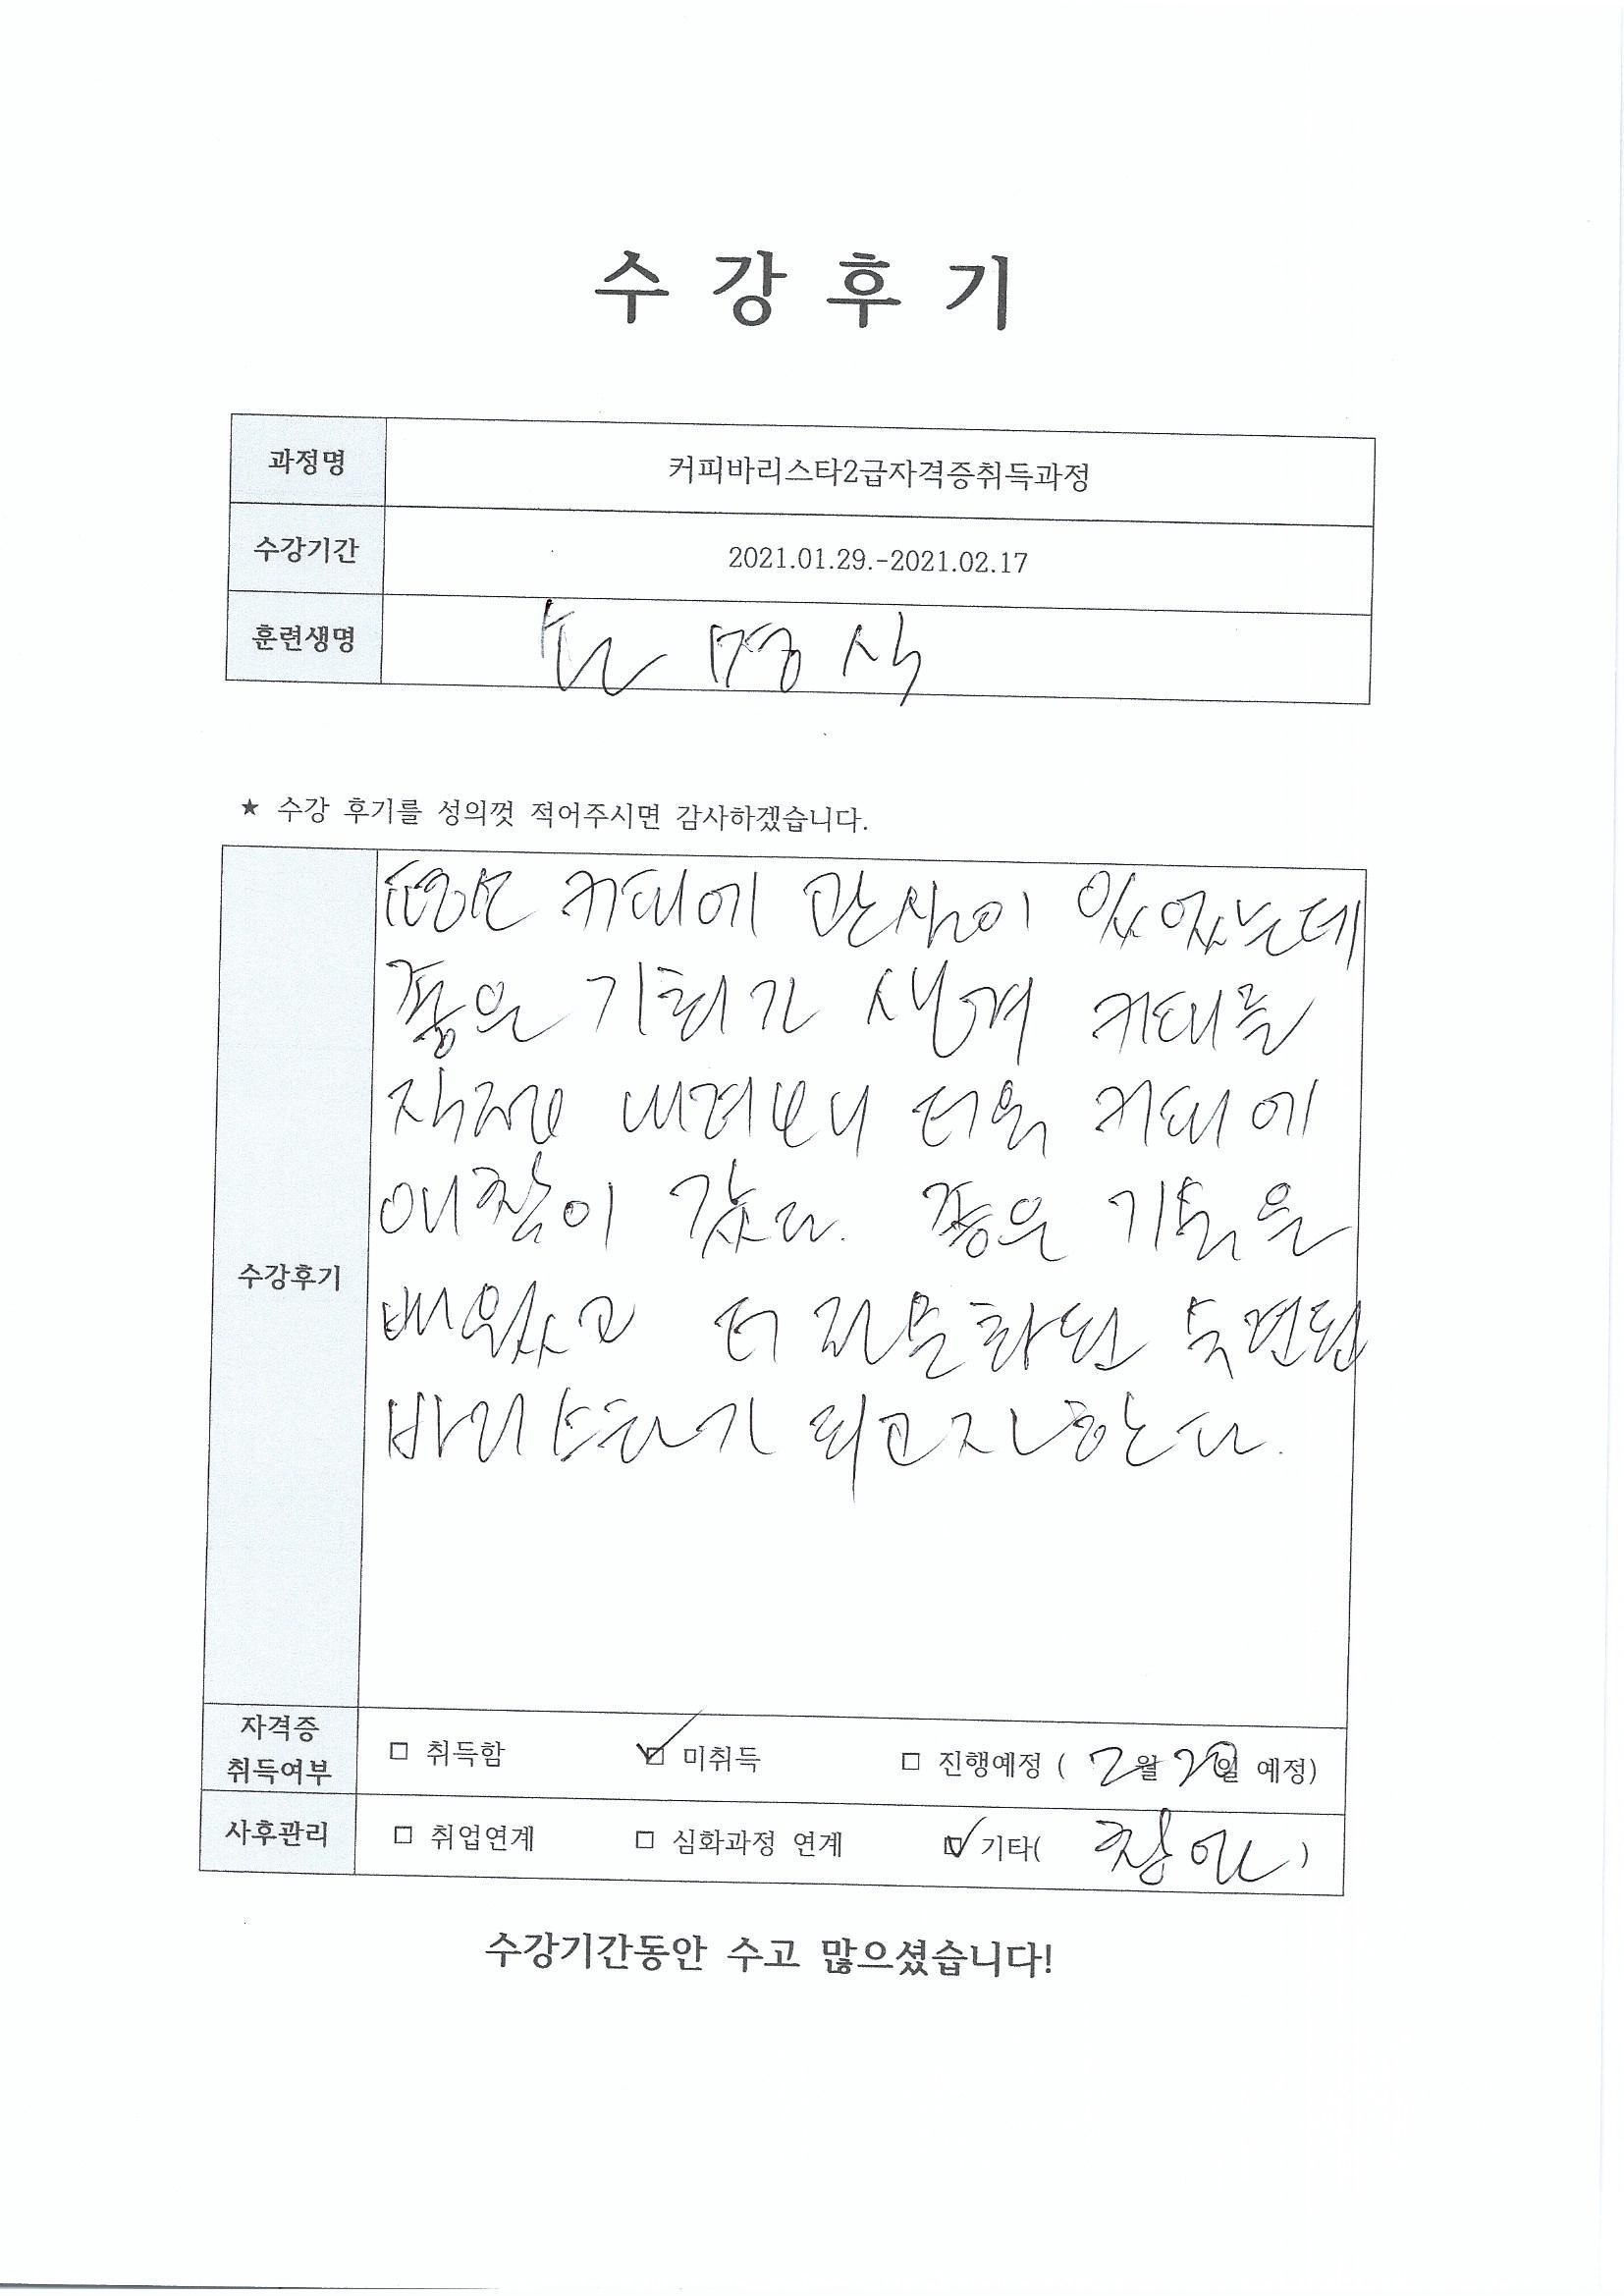 수 강 후 기
과정명 커피바리스타2급자격증취득과정
수강기간 2021.01.29.-2021.02.17
훈련생명 손 명 식
★ 수강 후기를 성의껏 적어주시면 감사하겠습니다.
수강후기
평소 커피에 관심이 있었는데
좋은 기회가 생겨 커피를
직접 내려보니 더욱 커피에
애착이 갔다. 좋은 기술을
배웠고 더 전문화된 숙련된
바리스타가 되고자한다.
자격증
취득여부
□ 취득함 ☑ 미취득 □ 진행예정 ( 2월 20일 예정)
사후관리 □ 취업연계 □ 심화과정 연계 ☑ 기타( 창업 )
수강기간동안 수고 많으셨습니다!